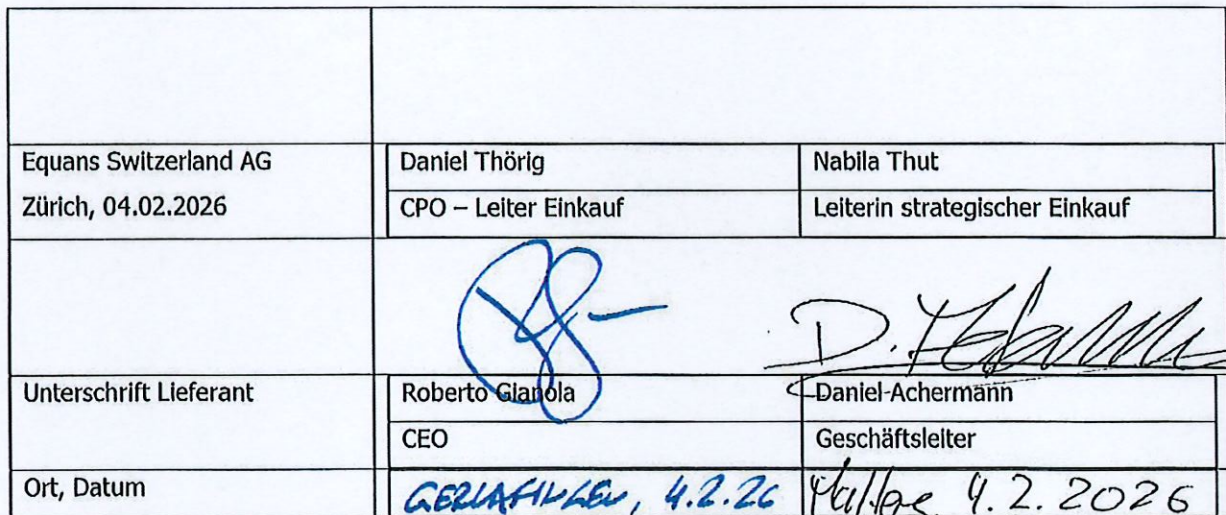 Equans Switzerland AG
Daniel Thörig
Nabila Thut
Zürich, 04.02.2026
CPO – Leiter Einkauf
Leiterin strategischer Einkauf
D. Achermann
Unterschrift Lieferant
Roberto Gianola
Daniel Achermann
CEO
Geschäftsleiter
Ort, Datum
GERLAFINGEN, 4.2.26
4.2.2026